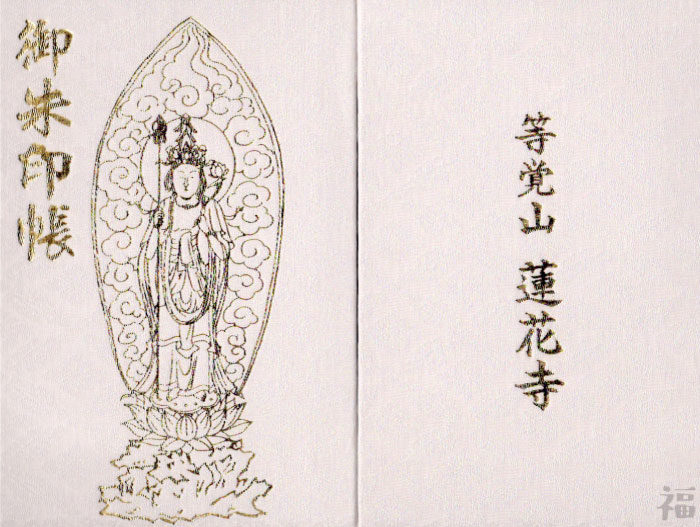 御朱印帳
等覚山 蓮花寺
福